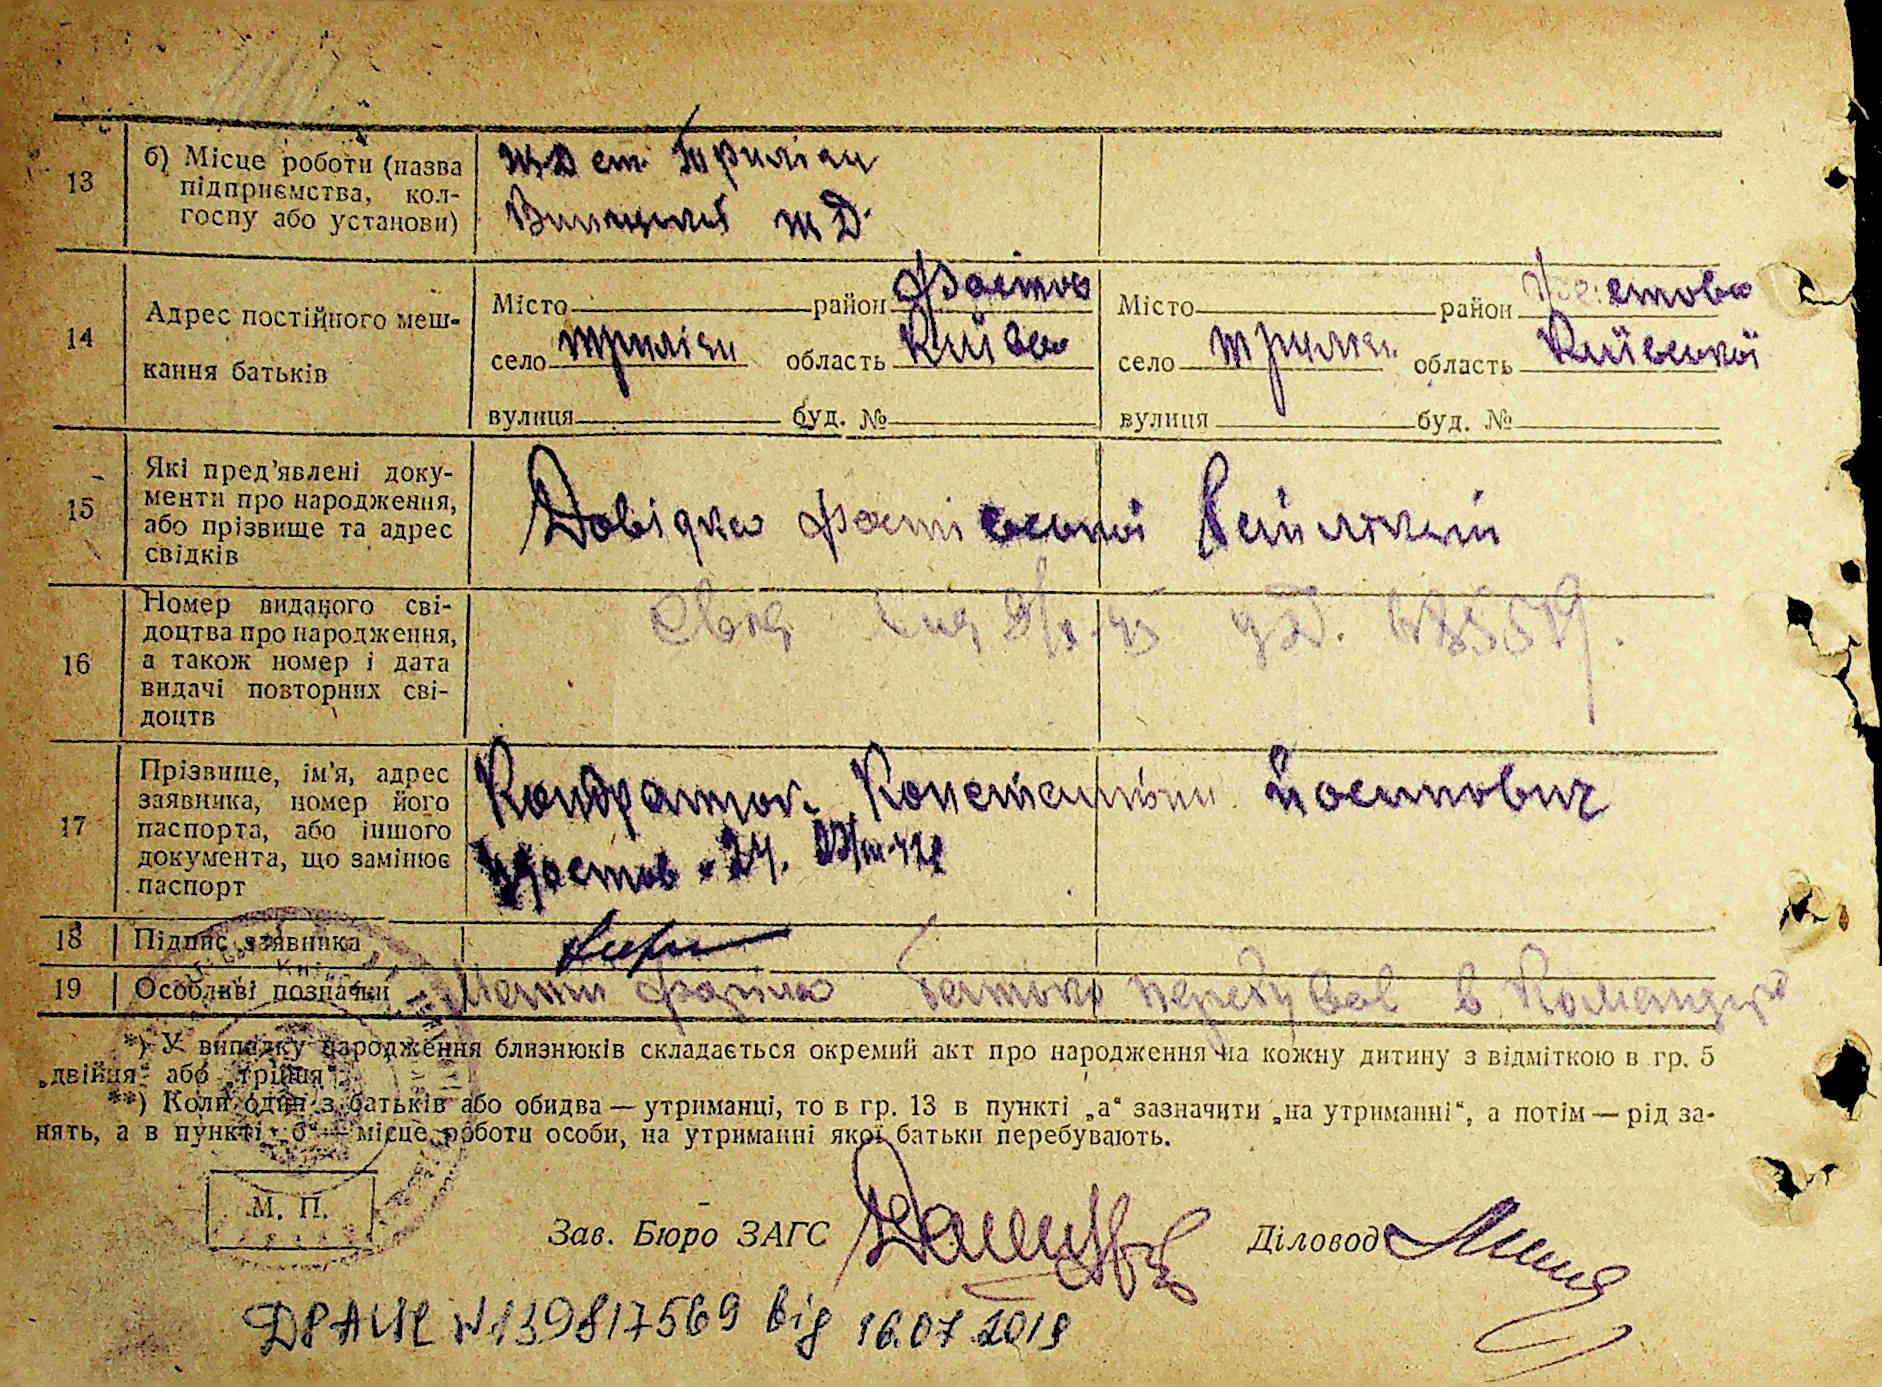 13
б) Місце роботи (назва
підприємства, кол-
госпу або установи)
ЖД ст. Триліси
ЖД
14
Адрес постійного меш-
кання батьків
Місто район Фастов
село Триліси область Київсь
вулиця буд. №
Місто район Фастовсь
село Триліси область Київської
вулиця буд. №
15
Які пред'явлені доку-
менти про народження,
або прізвище та адрес
свідків
Довідка Фастівської
16
Номер виданого сві-
доцтва про народження,
а також номер і дата
видачі повторних сві-
доцтв
17
Прізвище, ім'я, адрес
заявника, номер його
паспорта, або іншого
документа, що замінює
паспорт
Константин
Фастов
18
Підпис заявника
19
Особливі позначки
Батько перебував в
*) У випадку народження близнюків складається окремий акт про народження на кожну дитину з відміткою в гр. 5
„двійня“ або „трійня“.
**) Коли один з батьків або обидва — утриманці, то в гр. 13 в пункті „а“ зазначити „на утриманні“, а потім — рід за-
нять, а в пункті „б“ — місце роботи особи, на утриманні якої батьки перебувають.
М. П.
Зав. Бюро ЗАГС
Діловод
N 139817569 від 16.07.2018